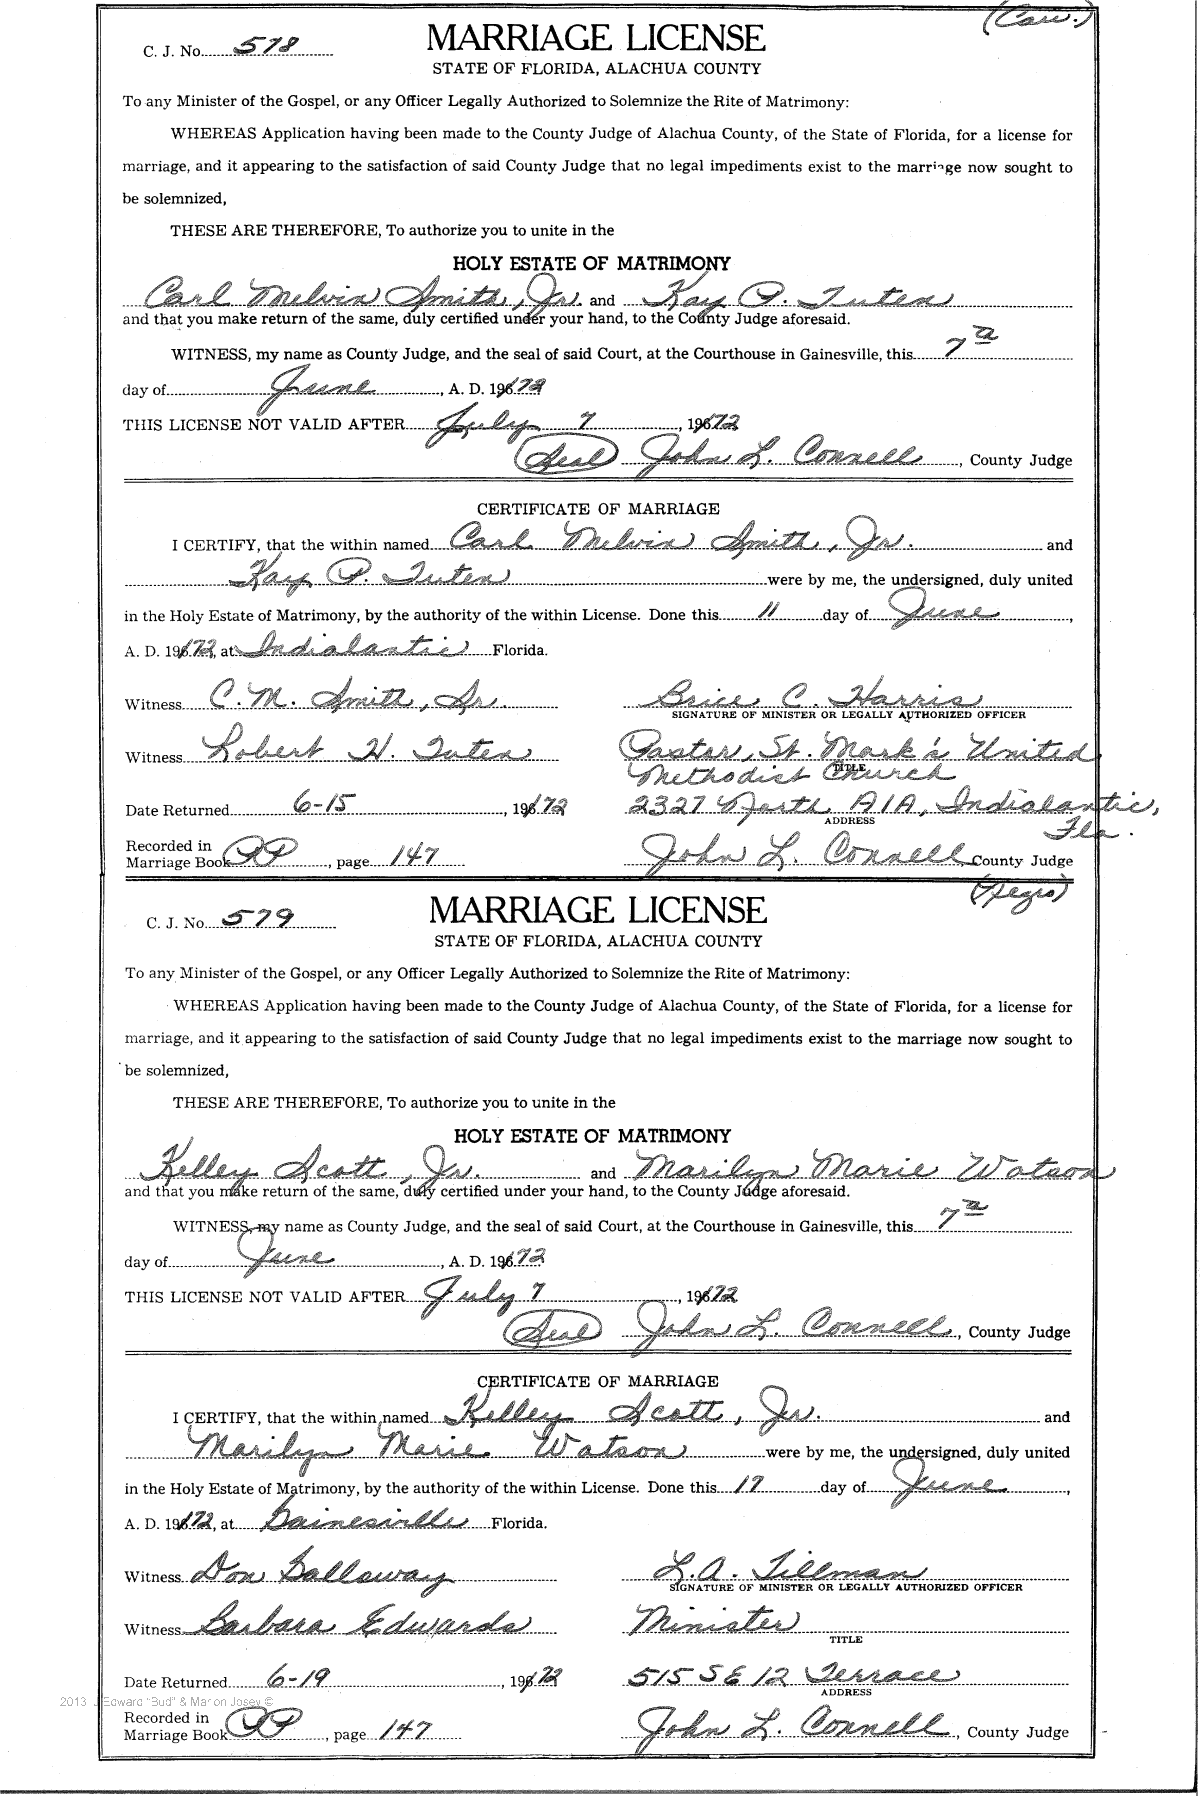 (Cau.)
C. J. No. 578
MARRIAGE LICENSE
STATE OF FLORIDA, ALACHUA COUNTY
To any Minister of the Gospel, or any Officer Legally Authorized to Solemnize the Rite of Matrimony:
WHEREAS Application having been made to the County Judge of Alachua County, of the State of Florida, for a license for
marriage, and it appearing to the satisfaction of said County Judge that no legal impediments exist to the marriage now sought to
be solemnized,
THESE ARE THEREFORE, To authorize you to unite in the
HOLY ESTATE OF MATRIMONY
Carl Melvin Smith, Jr. and Kay P. Tuten
and that you make return of the same, duly certified under your hand, to the County Judge aforesaid.
WITNESS, my name as County Judge, and the seal of said Court, at the Courthouse in Gainesville, this 7th
day of June, A. D. 1972
THIS LICENSE NOT VALID AFTER July 7, 1972
(Seal) John L. Connell, County Judge
CERTIFICATE OF MARRIAGE
I CERTIFY, that the within named Carl Melvin Smith, Jr. and
Kay P. Tuten were by me, the undersigned, duly united
in the Holy Estate of Matrimony, by the authority of the within License. Done this 11 day of June,
A. D. 1972, at Indialantic Florida.
Witness C. M. Smith, Sr. Brice C. Harris
SIGNATURE OF MINISTER OR LEGALLY AUTHORIZED OFFICER
Witness Robert H. Tuten Pastor, St. Mark's United
Methodist Church
TITLE
Date Returned 6-15, 1972 2327 North A1A, Indialantic,
Fla.
ADDRESS
Recorded in
Marriage Book PP, page 147 John L. Connell County Judge
(Negro)
C. J. No. 579
MARRIAGE LICENSE
STATE OF FLORIDA, ALACHUA COUNTY
To any Minister of the Gospel, or any Officer Legally Authorized to Solemnize the Rite of Matrimony:
WHEREAS Application having been made to the County Judge of Alachua County, of the State of Florida, for a license for
marriage, and it appearing to the satisfaction of said County Judge that no legal impediments exist to the marriage now sought to
be solemnized,
THESE ARE THEREFORE, To authorize you to unite in the
HOLY ESTATE OF MATRIMONY
Kelley Scott, Jr. and Marilyn Marie Watson
and that you make return of the same, duly certified under your hand, to the County Judge aforesaid.
WITNESS, my name as County Judge, and the seal of said Court, at the Courthouse in Gainesville, this 7th
day of June, A. D. 1972
THIS LICENSE NOT VALID AFTER July 7, 1972
(Seal) John L. Connell, County Judge
CERTIFICATE OF MARRIAGE
I CERTIFY, that the within named Kelley Scott, Jr. and
Marilyn Marie Watson were by me, the undersigned, duly united
in the Holy Estate of Matrimony, by the authority of the within License. Done this 17 day of June,
A. D. 1972, at Gainesville Florida.
Witness Don Gallaway L. A. Tillman
SIGNATURE OF MINISTER OR LEGALLY AUTHORIZED OFFICER
Witness Barbara Edwards Minister
TITLE
Date Returned 6-19, 1972 515 SE 12 Terrace
ADDRESS
2013 J Edward "Bud" & Marion Josey ©
Recorded in
Marriage Book PP, page 147 John L. Connell, County Judge